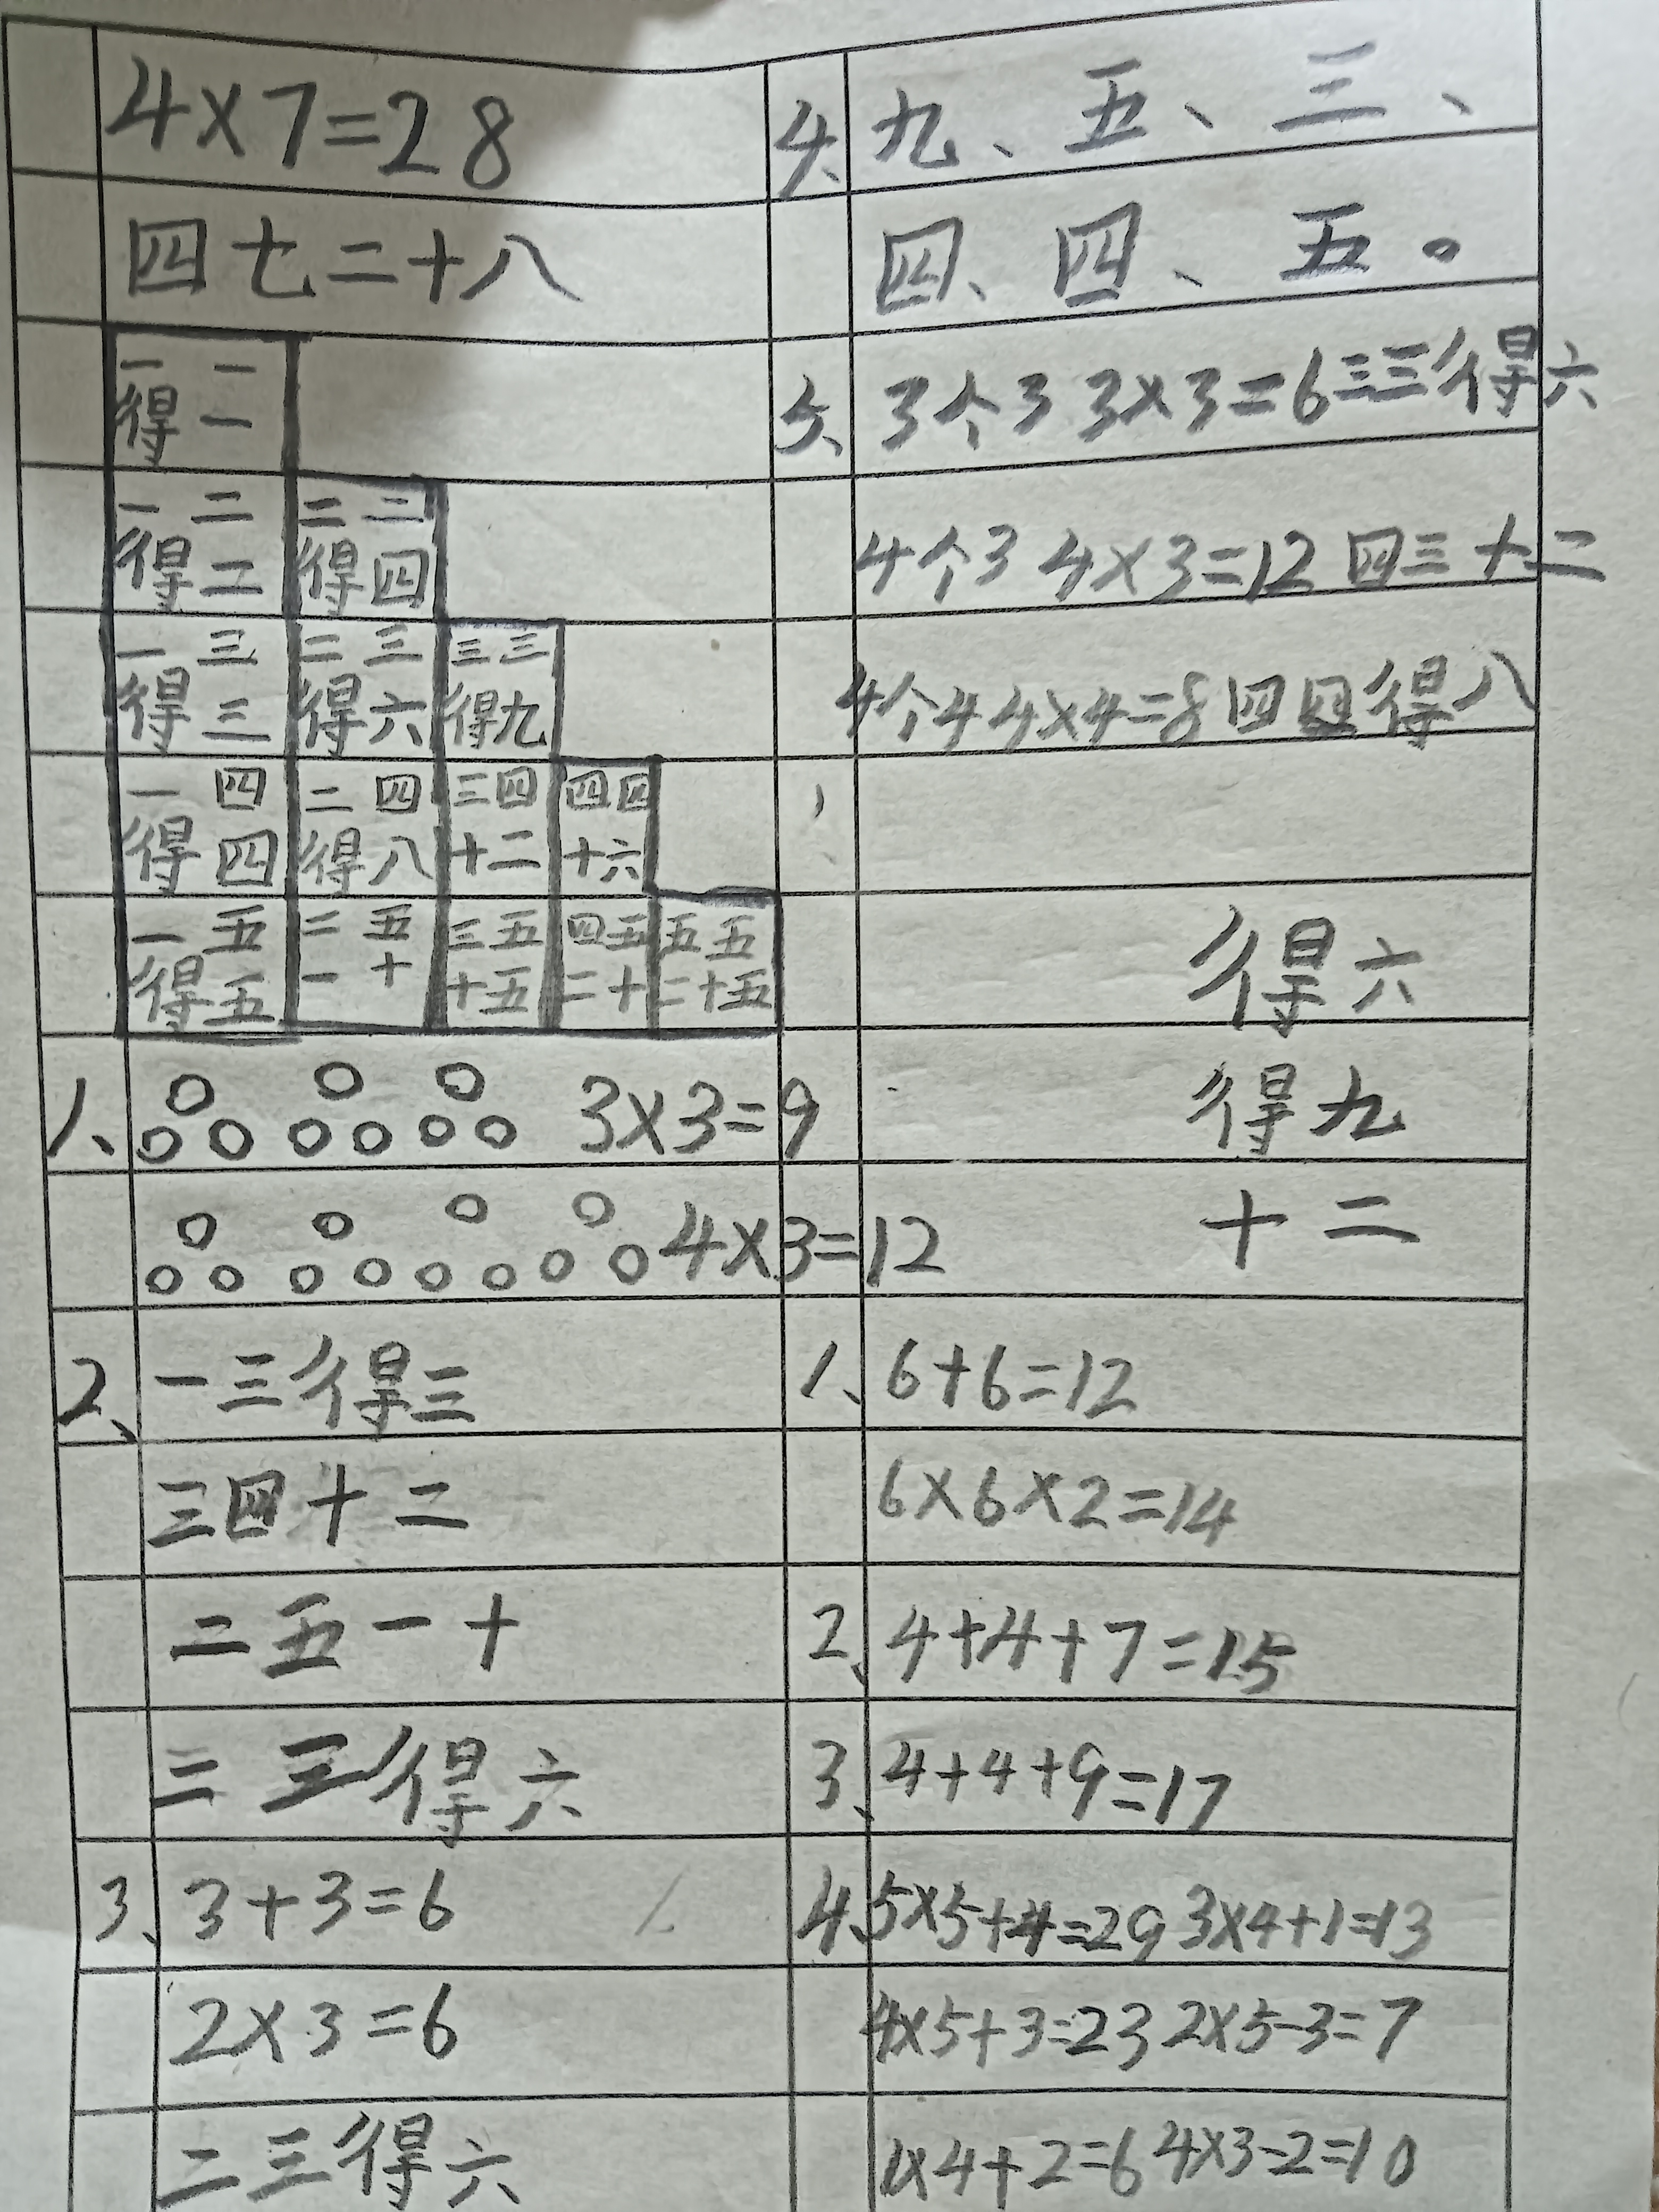 4×7=28
四七二十八
一一
得一
一二 二二
得二 得四
一三 二三 三三
得三 得六 得九
一四 二四 三四 四四
得四 得八 十二 十六
一五 二五 三五 四五 五五
得五 一十 十五 二十 二十五
1、 3×3=9
4×3=12
2、一三得三
三四十二
二五一十
三三得六
3、3+3=6
2×3=6
二三得六
4、九、五、三、
四、四、五。
5、3个3 3×3=6 三三得六
4个3 4×3=12 四三十二
4个4 4×4=8 四四得八
得六
得九
十二
1、6+6=12
6×6×2=14
2、4+4+7=15
3、4+4+9=17
4、5×5+4=29 3×4+1=13
4×5+3=23 2×5-3=7
4×4+2=6 4×3-2=10